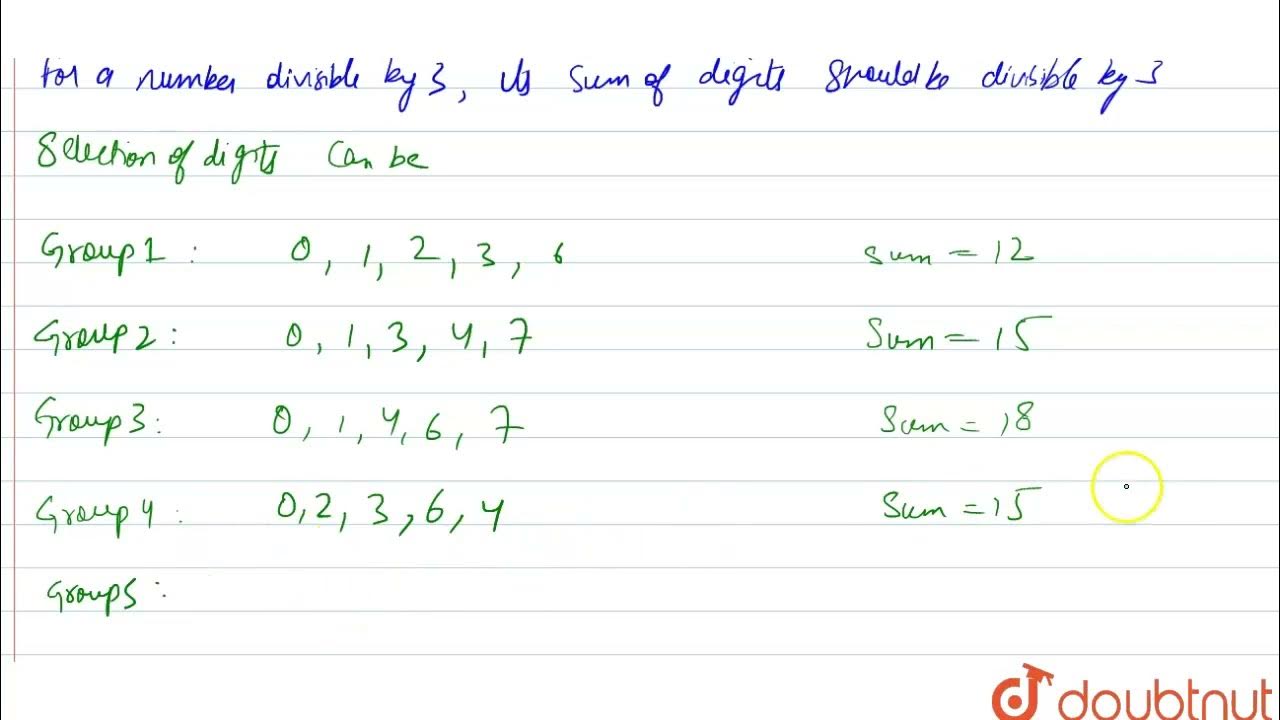 for a number divisible by 3, its sum of digits should be divisible by 3
Selection of digits can be
Group 1 : 0, 1, 2, 3, 6 sum = 12
Group 2 : 0, 1, 3, 4, 7 Sum = 15
Group 3 : 0, 1, 4, 6, 7 Sum = 18
Group 4 : 0, 2, 3, 6, 4 Sum = 15
Group 5 :
doubtnut